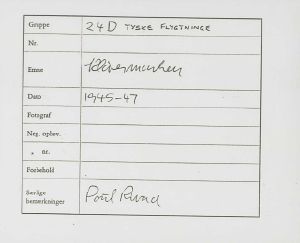 Gruppe 24D TYSKE FLYGTNINGE
Nr.
Emne Kløvermarken
Dato 1945-47
Fotograf
Neg. opbev.
„ nr.
Forbehold
Særlige
bemærkninger Poul Rund